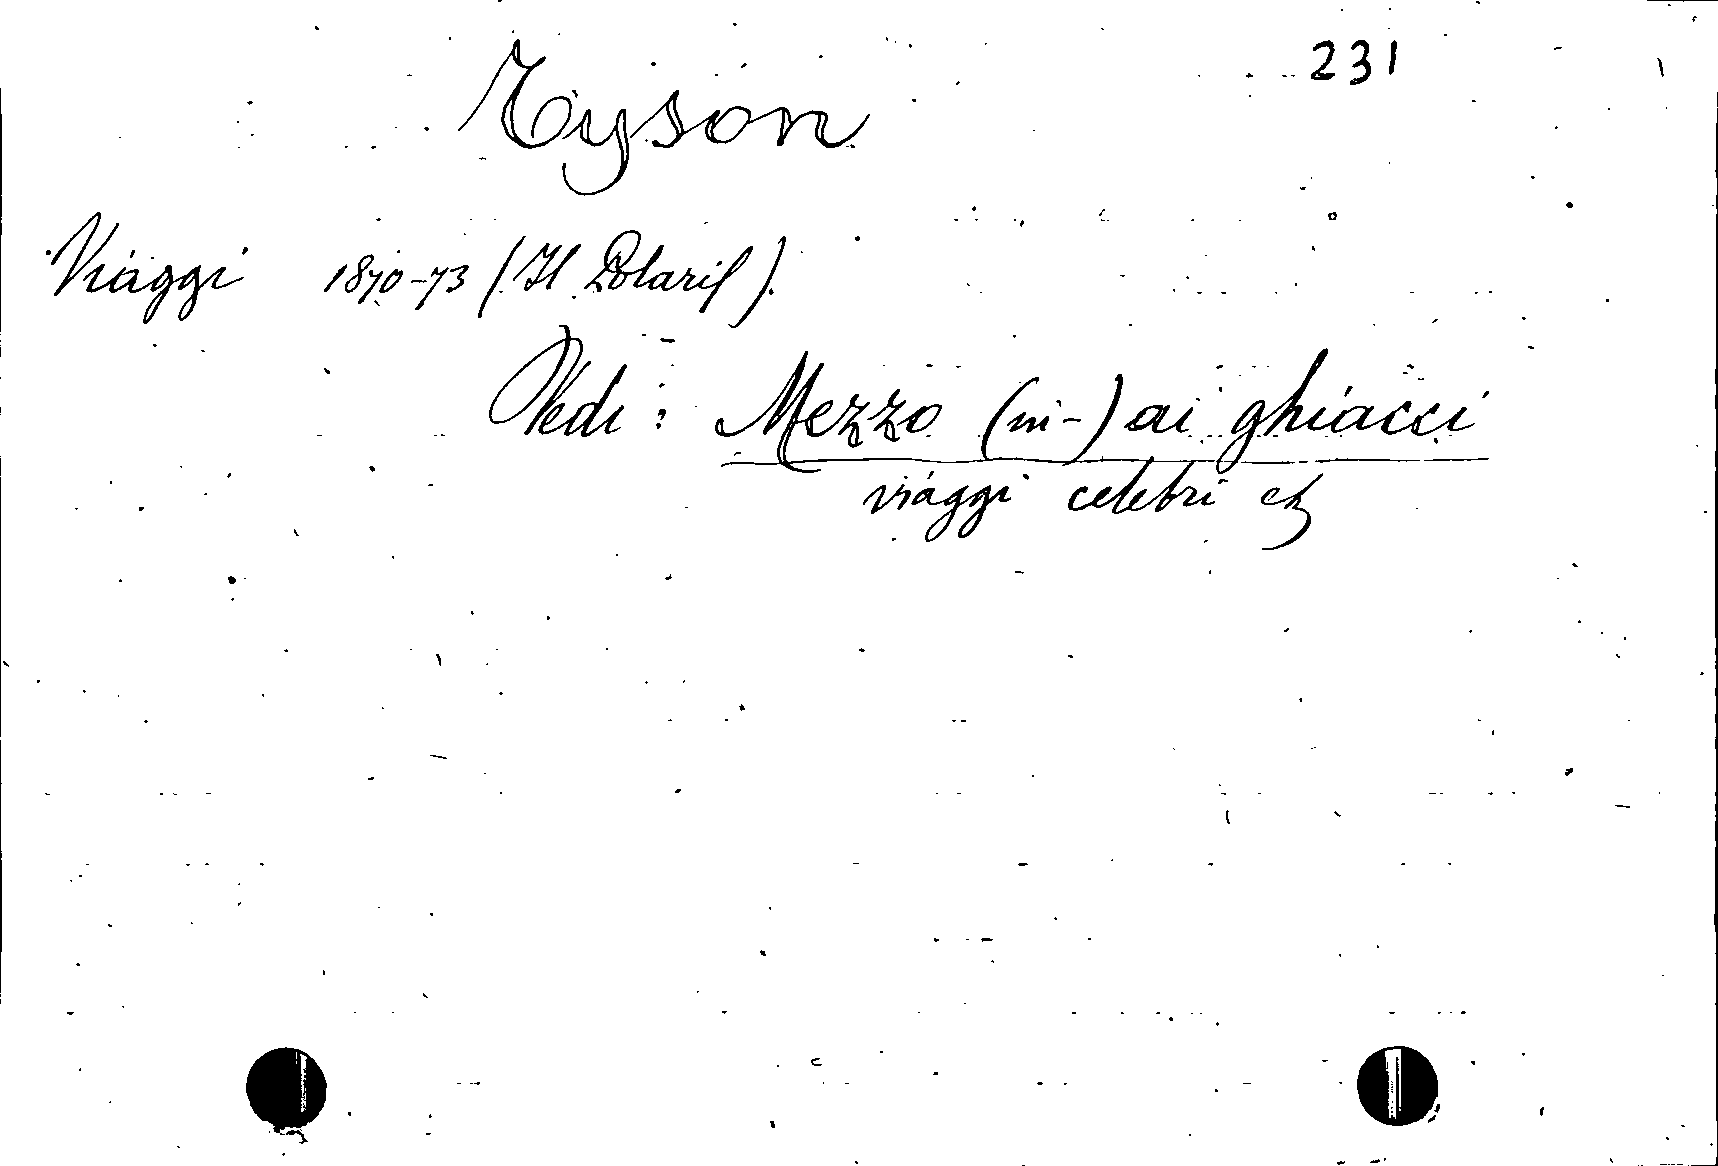 231
Tyson
Viaggi 1870-73 (Il Polaris).
Vedi: Mezzo (in-) ai ghiacci
viaggi celebri